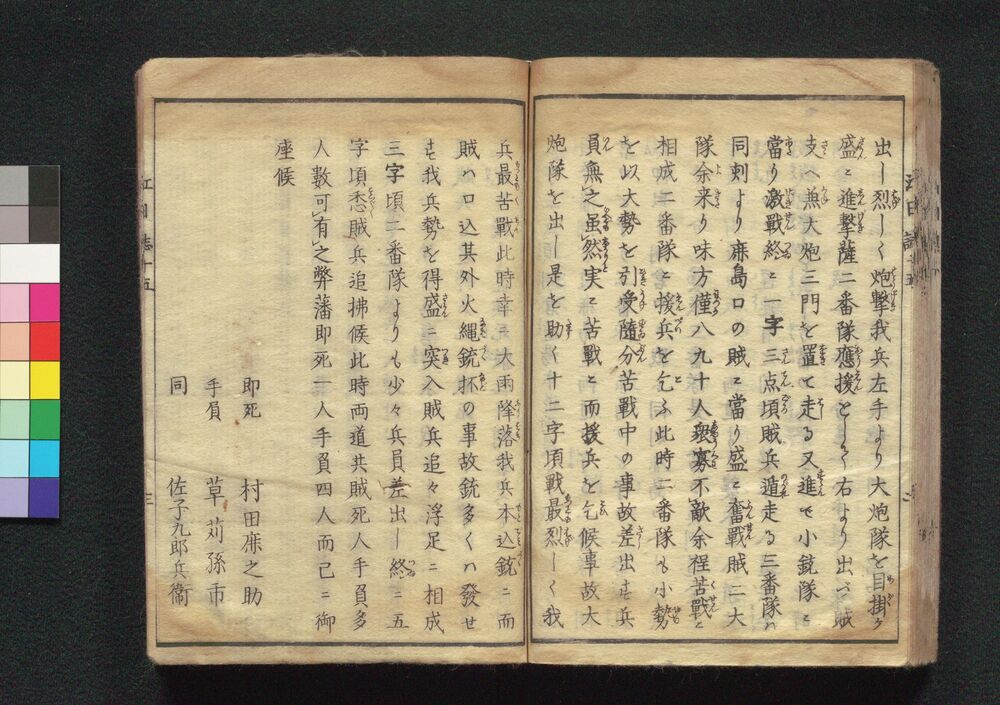 出し烈しく炮撃我兵左手より大炮隊を目掛ケ
盛ニ進撃薩二番隊應援として右より出づ賊
支へ兼大炮三門を置て走る又進て小銃隊ニ
當り激戦終ニ一字三点頃賊兵遁走る三番隊ハ
同刻より麻島口の賊ニ當り盛ニ奮戦賊二大
隊余来り味方僅八九十人衆寡不敵余程苦戦ニ
相成二番隊ニ援兵を乞ふ此時二番隊も小勢
を以大勢を引受随分苦戦中の事故差出せ兵
員無之雖然実ニ苦戦ニ而援兵を乞候事故大
炮隊を出し是を助く十二字頃戦最烈しく我
兵最苦戦此時幸ニ大雨降落我兵本込銃ニ而
賊ハ口込其外火縄銃抔の事故銃多くハ發せ
せ我兵勢を得盛ニ突入賊兵追々浮足ニ相成
三字頃二番隊よりも少々兵員差出し終ニ五
字頃悉賊兵追拂候此時両道共賊死人手負多
人数可有之弊藩即死一人手負四人而已ニ御
座候
即死 村田麻之助
手負 草苅孫市
同 佐子九郎兵衞
江日志十五